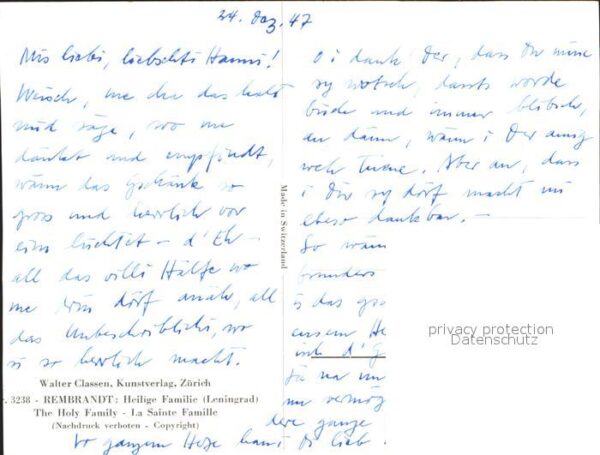 24. Dez. 47
Mis liebi, liebschti Hanni!
Weisch, me cha das halt
nüd säge, wo me
dänkt und empfindt,
wänn das Gschänk so
gross und herrlich vor
eim lüchtet – d'Eh –
all das
me dörf all
das Unbeschriblichi, wo
si so herrlich macht.
Walter Classen, Kunstverlag, Zürich
r. 3238 - REMBRANDT: Heilige Familie (Leningrad)
The Holy Family - La Sainte Famille
(Nachdruck verboten - Copyright)
Vo ganzem Herze han i Di lieb.
Made in Switzerland
O i dank Der, dass Du mine
sy wotsch, dass worde
und immer blibsch,
au dänn, wänn i Der amig
weh tuene. Aber au, dass
i Din sy dörf macht mi
ebeso dankbar. –
So wäm
bsunders
is das gro
eusem He
isch d'G
Sä na im
me vermög
dere ganze
privacy protection
Datenschutz